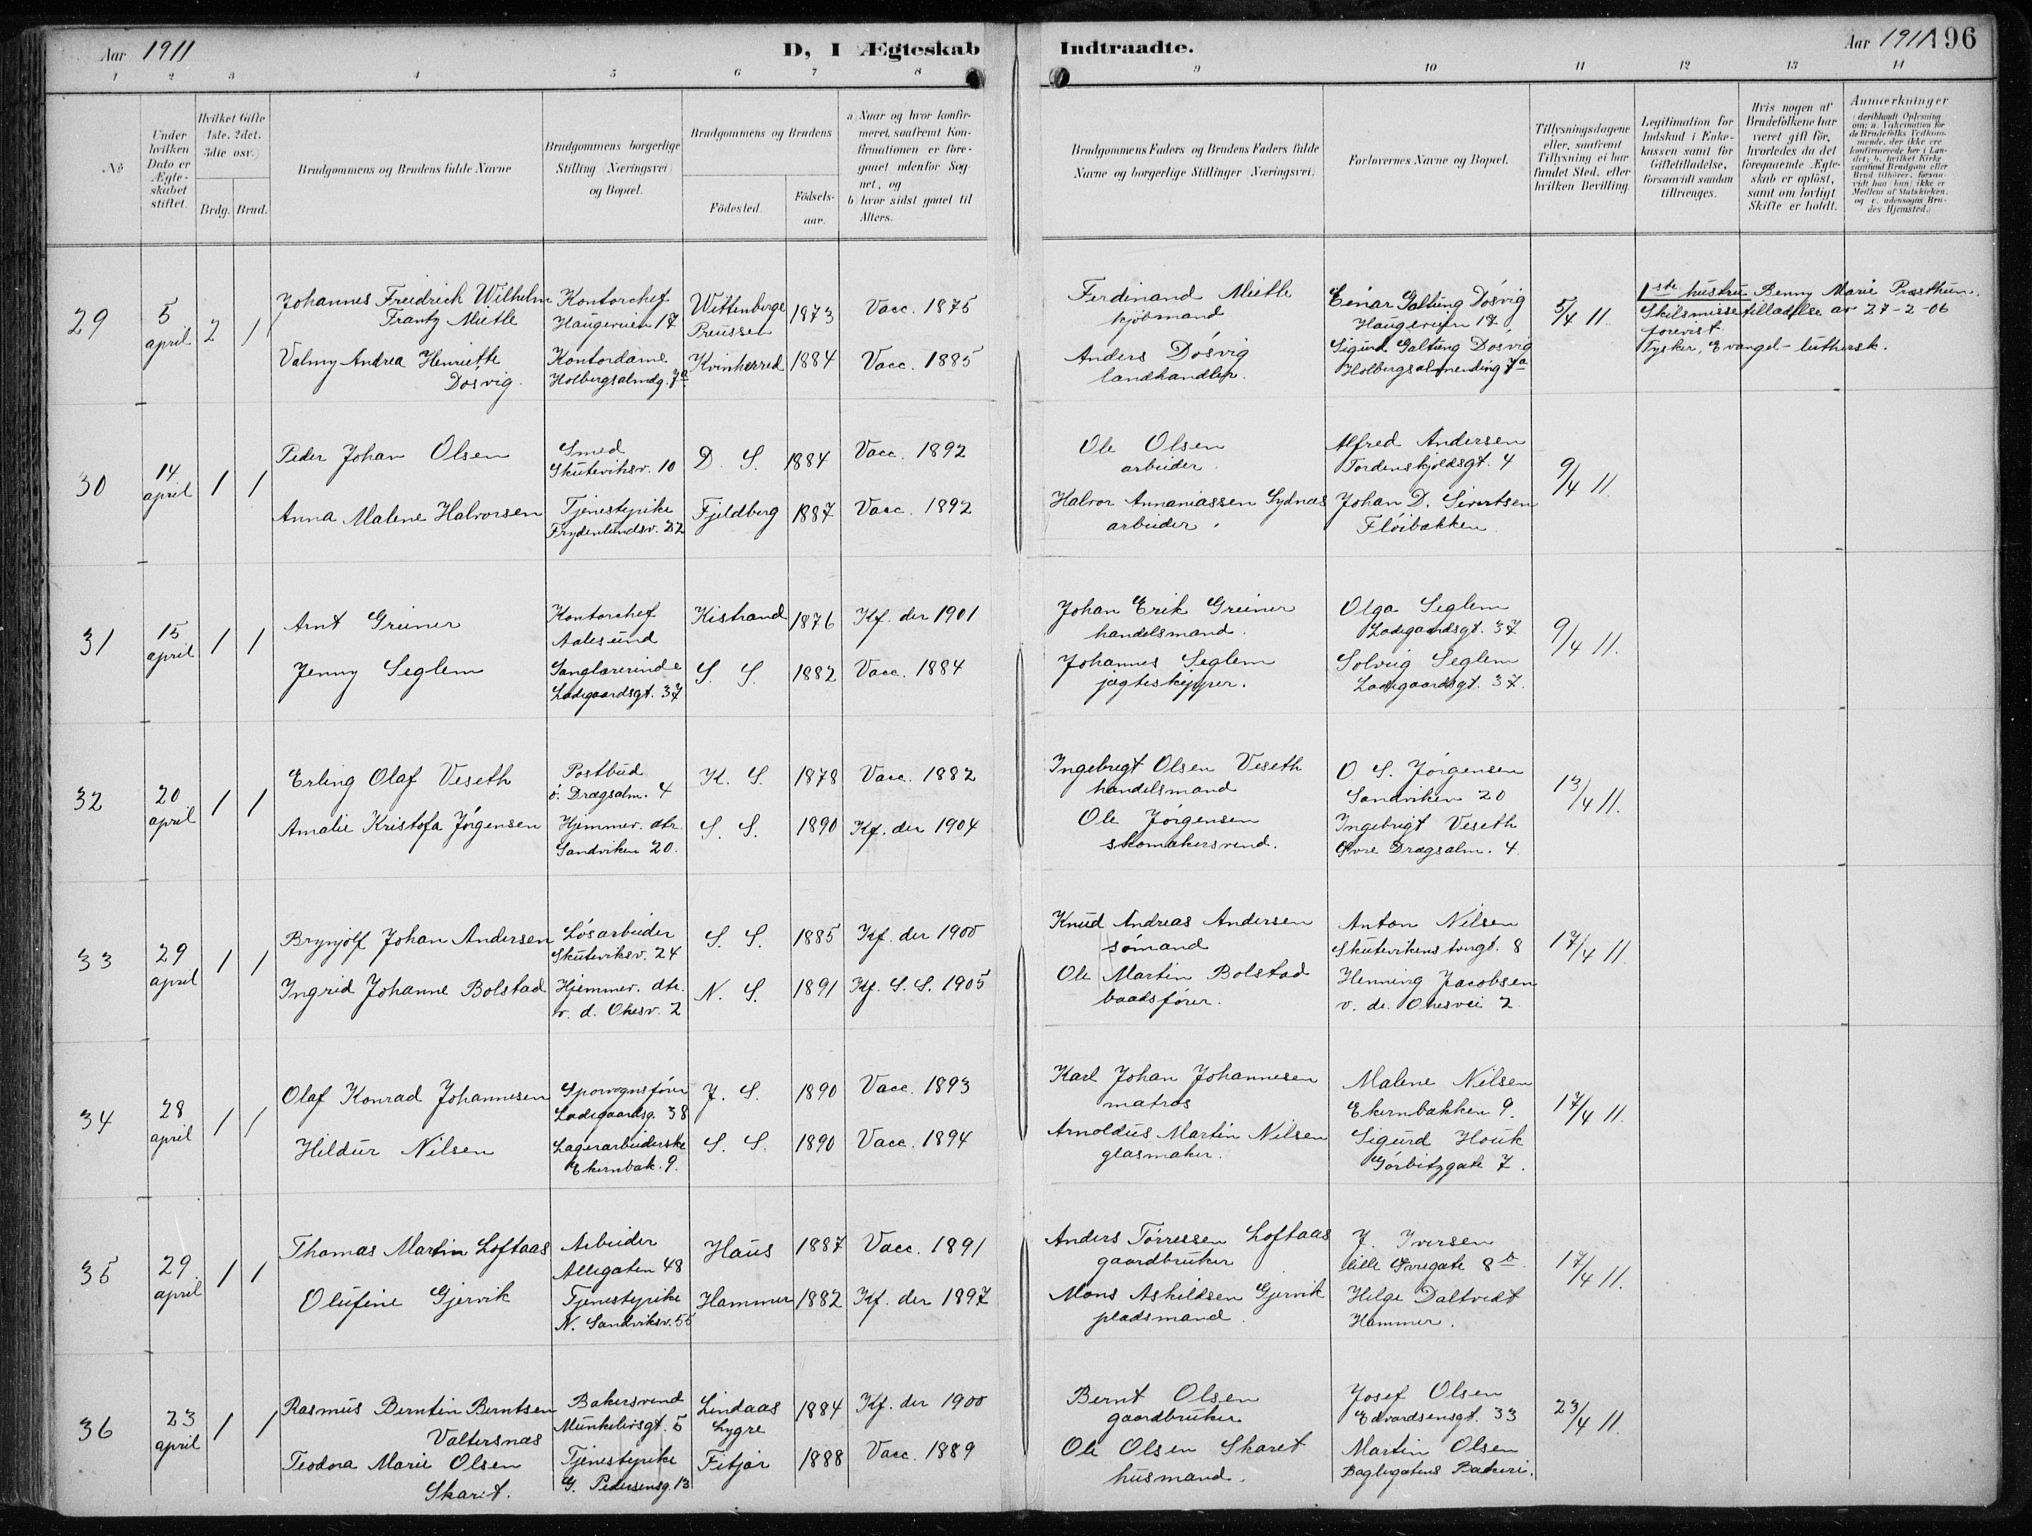 Aar 1911
D, I Ægteskab
Indtraadte.
Aar 1911
196
1 2 3 4 5 6 7 8 9 10 11 12 13 14
No
Under hvilken Dato er Ægteskabet stiftet.
Hvilket Gifte 1ste, 2det, 3die osv.)
Brdg. Brud.
Brudgommens og Brudens fulde Navne
Brudgommens borgerlige Stilling (Næringsvei) og Bopæl.
Brudgommens og Brudens
Födested.
Födsels-aar.
a) Naar og hvor konfirmeret, saafremt Konfirmationen er foregaaet udenfor Sognet, og
b) hvor sidst gaaet til Alters.
Brudgommens Faders og Brudens Faders fulde Navne og borgerlige Stillinger Næringsvei.
Forlovernes Navne og Bopæl.
Tillysningsdagene eller, saafremt Tillysning ei har fundet Sted, efter hvilken Bevilling.
Legitimation for Indskud i Enkekassen samt for Giftetilladelse, forsaavidt saadan tiltrænges.
Hvis nogen af Brudefolkene har været gift för, hvorledes da det foregaaende Ægteskab er oplöst, samt om lovligt Skifte er holdt.
Anmærkninger
(deriblandt Oplysning om: a. Vakcination for de Brudefolks Vedkommende, der ikke ere konfirmerede her i Landet; b. hvilket Kirkesamfund Brudgom eller Brud tilhörer, forsaavidt han (hun) ikke er Medlem af Statskirken, og c. udensogns Brudes Hjemsted.)
29
5 april
2 1
Johannes Freidrich Wilhelm Frantz Mietle
Kontorchef
Haugeveien 17
Wittenberge Preussen
1873
Vacc. 1875
Ferdinand Mietle
kjöbmand
Einar Galtung Døsvig
Haugeveien 17
5/4 11.
1ste hustru Benny Marie Præsthun.
Skilsmissetilladelse av 27-2-06
forevist.
Tysker, Evangel-luthersk.
Valmy Andrea Henriette Døsvig.
Kontordame
Holbergsalmdg. 7a
Kvinherred
1884
Vacc. 1885
Anders Døsvig
landhandler.
Sigurd Galtung Døsvig
Holbergsalmending 7a
30
14 april
1 1
Peder Johan Olsen
Smed
Skuteviksv. 10
D. S.
1884
Vacc. 1892
Ole Olsen
arbeider.
Alfred Andersen
Tordenskjoldsgt. 4
9/4 11.
Anna Malene Halvorsen
Tjenestepike
Frydenlundsv. 22
Fjeldberg
1887
Vacc. 1892
Halvor Annaniassen Sydnæs
arbeider.
Johan D. Sivertsen
Fløibakken.
31
15 april
1 1
Arnt Greiner
Kontorchef
Aalesund
Kistrand
1876
Kf. der 1901
Johan Erik Greiner
handelsmand.
Olga Seglem
Ladegaardsgt. 37
9/4 11.
Jenny Seglem
Sanglærerinde
Ladegaardsgt. 37
S. S.
1882
Vacc. 1884
Johannes Seglem
jægteskipper.
Solveig Seglem
Ladegaardsgt. 37.
32
20 april
1 1
Erling Olaf Veseth
Postbud
ø. Drægsalm. 4
K. S.
1878
Vacc. 1882
Ingebregt Olsen Veseth
handelsmand
O. S. Jørgensen
Sandviken 20
13/4 11.
Amalie Kristofa Jørgensen
Hjemmev. dtr.
Sandviken 20.
S. S.
1890
Kf. der 1904
Ole Jørgensen
skomakersvend.
Ingebrigt Veseth
Øvre Drægsalm. 4.
33
29 april
1 1
Brynjolf Johan Andersen
Løsarbeider
Skuteviksv. 24
S. S.
1885
Kf. der 1900
Knud Andreas Andersen
sømand
Anton Nilsen
Skutevikens tvrgt. 8
17/4 11.
Ingrid Johanne Bolstad
Hjemmev. dtr.
v. d. Ohesv. 2
N. S.
1891
Kf. S. S. 1905
Ole Martin Bolstad
baadsfører.
Henning Jacobsen
v. de. Ohesvei 2
34
28 april
1 1
Olaf Konrad Johannesen
Sporvognsfører
Ladegaardsg. 38
J. S.
1890
Vacc. 1893
Karl Johan Johannesen
matros
Malene Nilsen
Ekernbakken 9.
17/4 11.
Hildur Nilsen
Lagerarbeiderske
Ekernbak. 9.
S. S.
1890
Vacc. 1894
Arnoldus Martin Nilsen
glasmaker.
Sigurd Houk
Gørbitzgate 7.
35
29 april
1 1
Thomas Martin Loftaas
Arbeider
Allegaten 48
Haus
1887
Vacc. 1891
Anders Tørresen Loftaas
gaardbruker
J. Iversen
lille Øvregate 8 b.
17/4 11.
Olufine Gjervik
Tjenestepike
N. Sandviksv. 55
Hammer
1882
Kf. der 1897
Mons Askildsen Gjervik
pladsmand.
Helge Daltvedt
Hammer.
36
23 april
1 1
Rasmus Berntin Berntsen Valtersnæs
Bakersvend
Munkelivsgt. 5
Lindaas Lygre
1884
Kf. der 1900
Bernt Olsen
gaardbruker
Josef Olsen
Edvardsensgt. 33
23/4 11.
Teodora Marie Olsen Skaret.
Tjenestepike
G. Pedersensg. 13
Fitjar
1888
Vacc. 1889
Ole Olsen Skaret
husmand.
Martin Olsen
Baglergatens Bakeri.